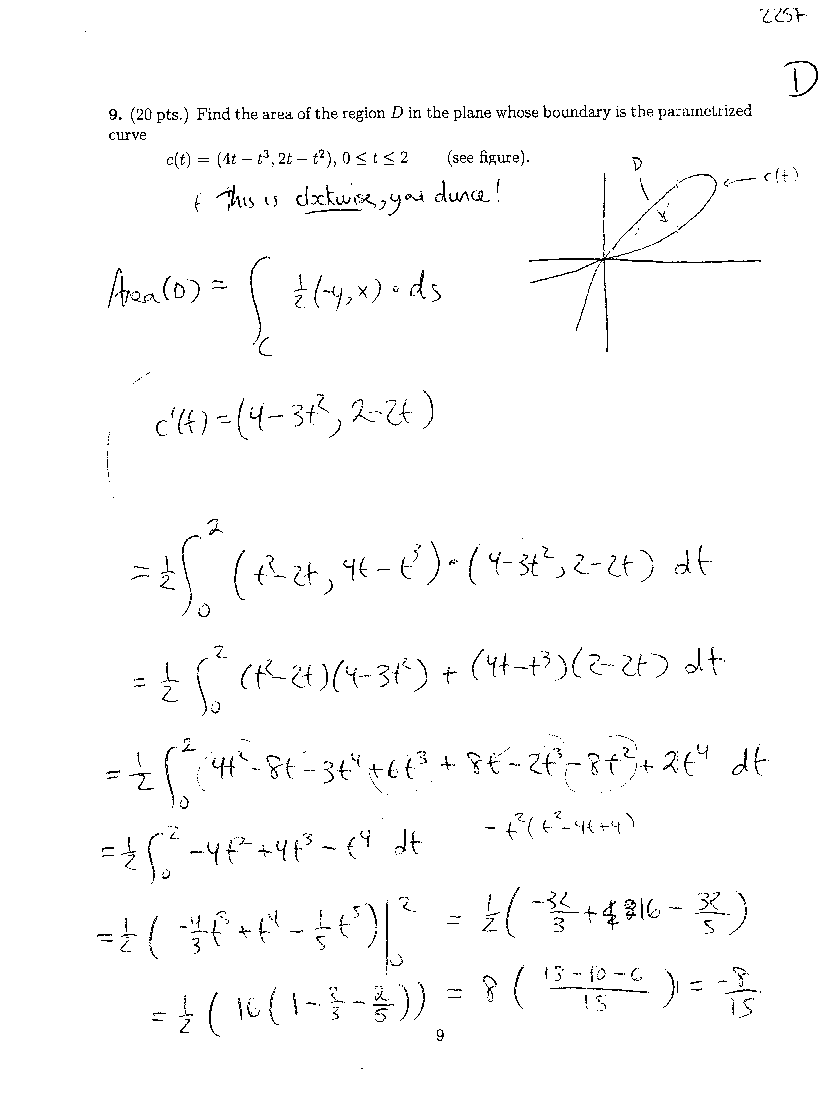 2257
D
9. (20 pts.) Find the area of the region D in the plane whose boundary is the parametrized
curve
c(t) = (4t − t³, 2t − t²), 0 ≤ t ≤ 2 (see figure).
D
c(t)
This is clockwise, you dunce!
Area(D) = ∫_C ½(-y, x) · ds
c'(t) = (4 − 3t², 2 − 2t)
= ½ ∫₀² (t² − 2t, 4t − t³) · (4 − 3t², 2 − 2t) dt
= ½ ∫₀² (t² − 2t)(4 − 3t²) + (4t − t³)(2 − 2t) dt
= ½ ∫₀² (4t² − 8t − 3t⁴ + 6t³ + 8t − 2t³ − 8t²) + 2t⁴ dt
= ½ ∫₀² −4t² + 4t³ − t⁴ dt
− t²(t² − 4t + 4)
= ½ ( −4/3 t³ + t⁴ − 1/5 t⁵ ) |₀² = ½ ( −32/3 + 16 − 32/5 )
= ½ ( 16 ( 1 − 2/3 − 2/5 )) = 8 ( (15 − 10 − 6)/15 ) = −8/15
9